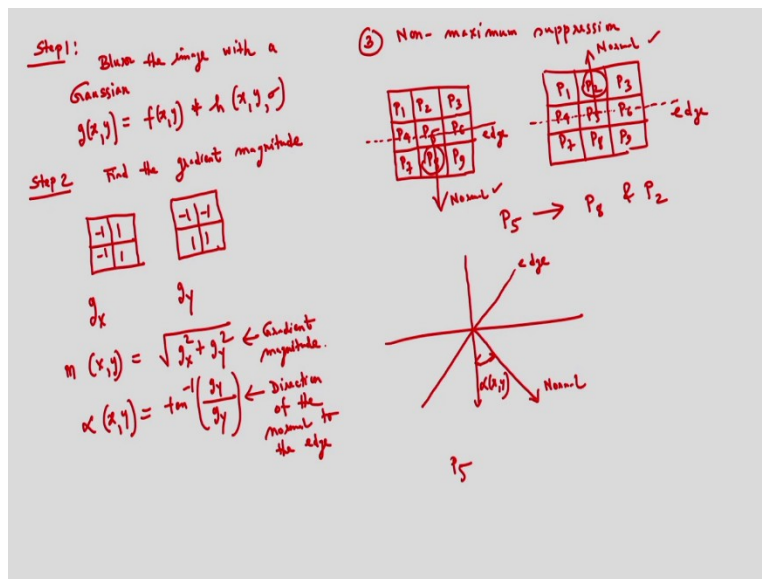 Step 1:
Blurr the image with a
Gaussian
g(x,y) = f(x,y) * h (x,y,σ)
Step 2 Find the gradient magnitude
-1 1
-1 1
-1 -1
1 1
gx gy
m (x,y) = √gx² + gy² ← Gradient
magnitude.
α (x,y) = tan⁻¹(gy/gy) ← Direction
of the
normal to
the edge
③ Non-maximum suppression
P1 P2 P3
P4 P5 P6 edge
P7 P8 P9
Normal ✓
Normal ✓
P1 P2 P3
P4 P5 P6 edge
P7 P8 P9
P5 → P8 & P2
edge
α(x,y)
Normal
P5